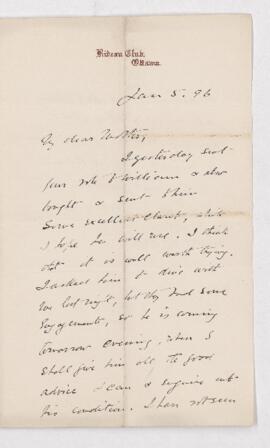 Rideau Club,
Ottawa.
Jan 5. 96
My dear
I yesterday sent
your note to William & also
bought & sent him
some excellent claret, which
I hope he will use. I think
that it is well worth trying.
I asked him to dine with
me last night, but they had some
engagement, so he is coming
tomorrow evening, when I
shall give him all the good
advice I can & enquire into
his condition. I have not seen